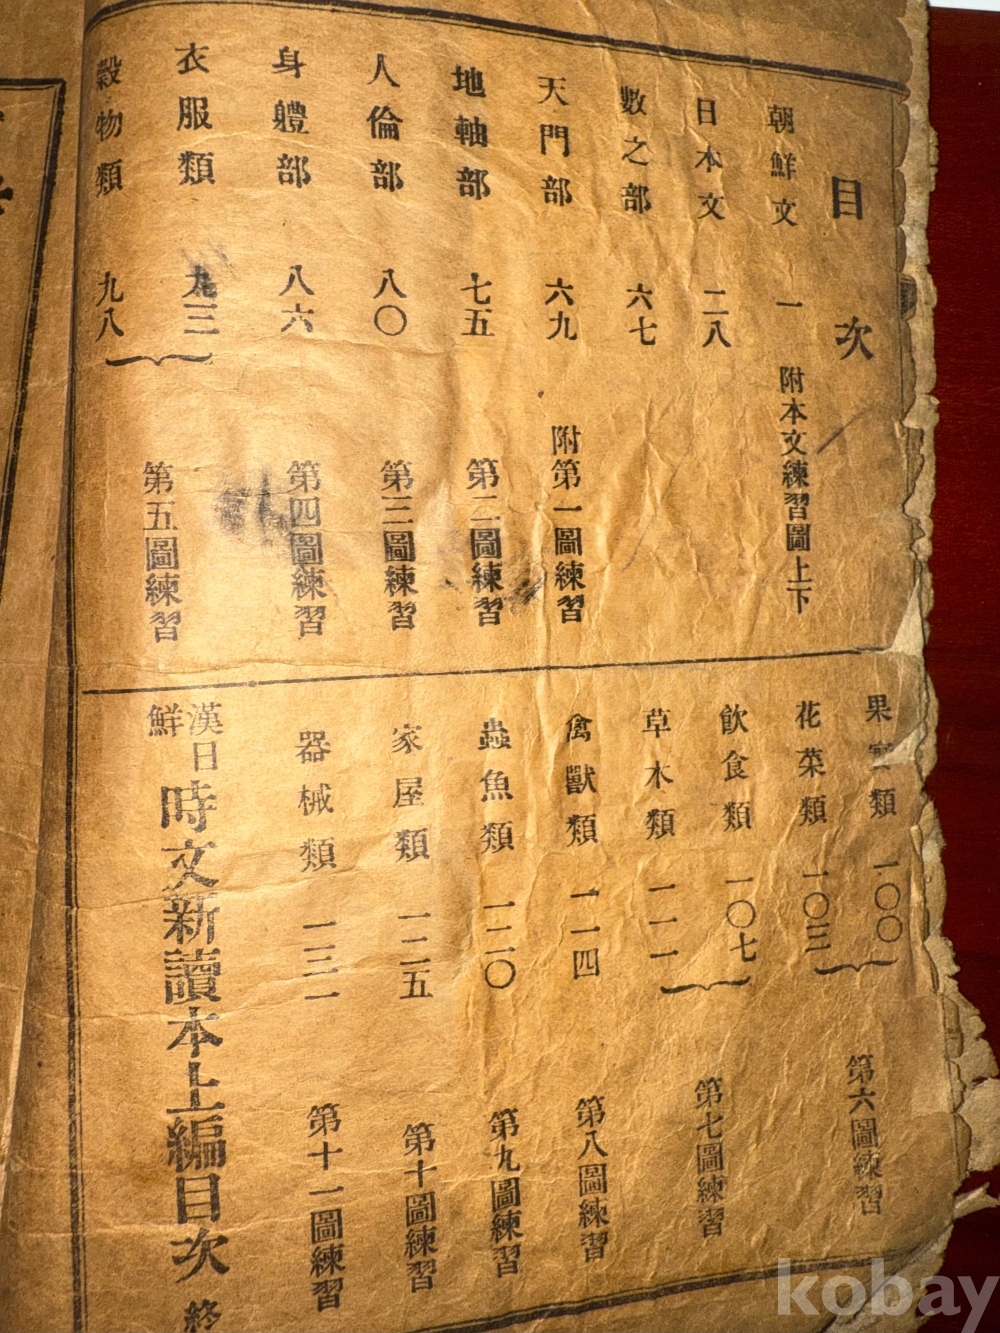 目次
朝鮮文 一 附本文練習圖上下
日本文 二八
數之部 六七
天門部 六九 附第一圖練習
地軸部 七五 第二圖練習
人倫部 八〇 第三圖練習
身軆部 八六 第四圖練習
衣服類 九三
穀物類 九八 第五圖練習
果實類 一〇〇
花菜類 一〇三 第六圖練習
飮食類 一〇七
草木類 一一一 第七圖練習
禽獸類 一一四 第八圖練習
蟲魚類 一二〇 第九圖練習
家屋類 一二五 第十圖練習
器械類 一三一 第十一圖練習
漢日鮮時文新讀本上編目次 終
kobay